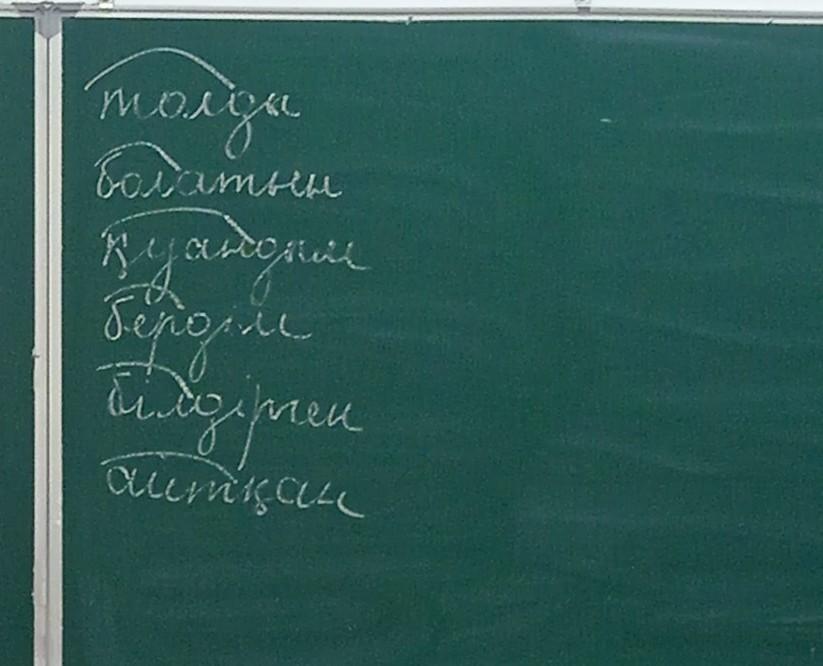 толды
болатын
қуандым
бердім
білдірген
айтқан